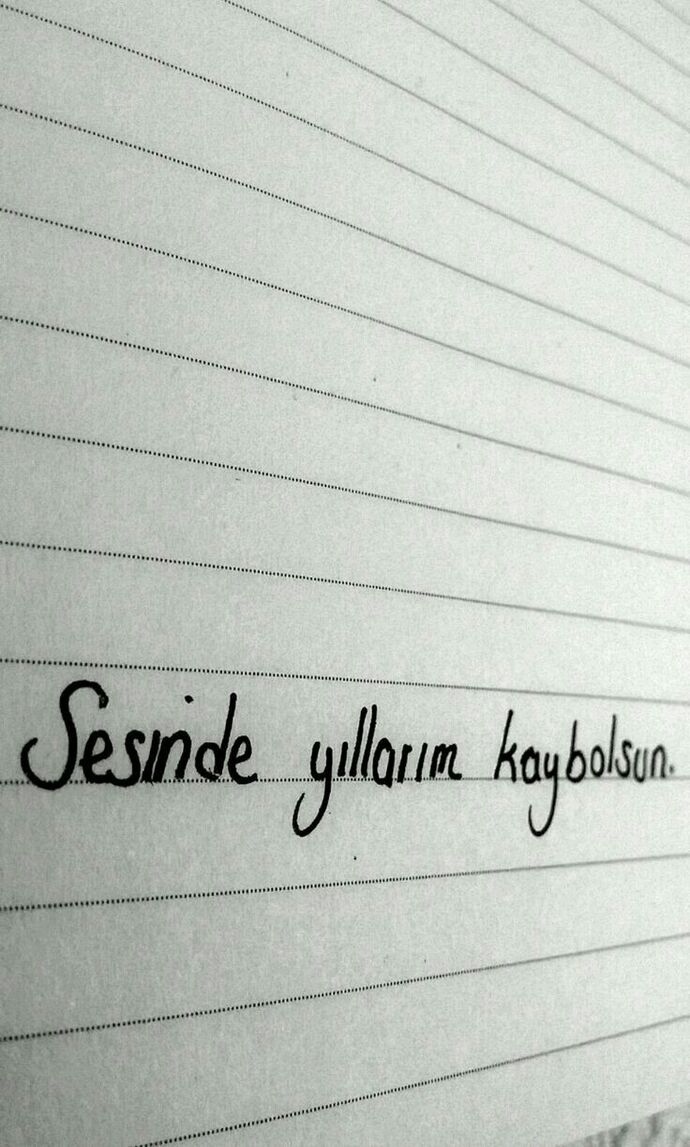 Sesinde yıllarım kaybolsun.